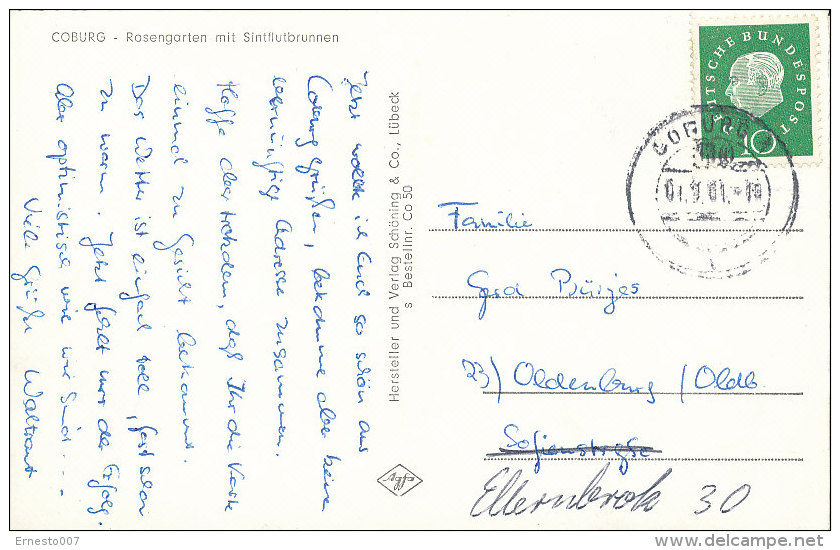 COBURG - Rosengarten mit Sintflutbrunnen
Jetzt wollte ich Euch so schön aus
Coburg grüßen, bekomme aber keine
vernünftige Adresse zusammen.
Hoffe aber trotzdem, daß Ihr die Karte
einmal zu Gesicht bekommt.
Das Wetter ist einfach toll, fast schon
zu warm. Jetzt fehlt nur der Erfolg.
Aber optimistisch wie wir sind . . .
Viele Grüße Waltraut
Hersteller und Verlag Schöning & Co., Lübeck
s Bestellnr. Co 50
Agfa
DEUTSCHE BUNDESPOST
10
COBURG
Familie
Gerd
23) Oldenburg / Oldb.
Sofienstraße
Ellernbrok 30
Ernesto007
delcampe.net